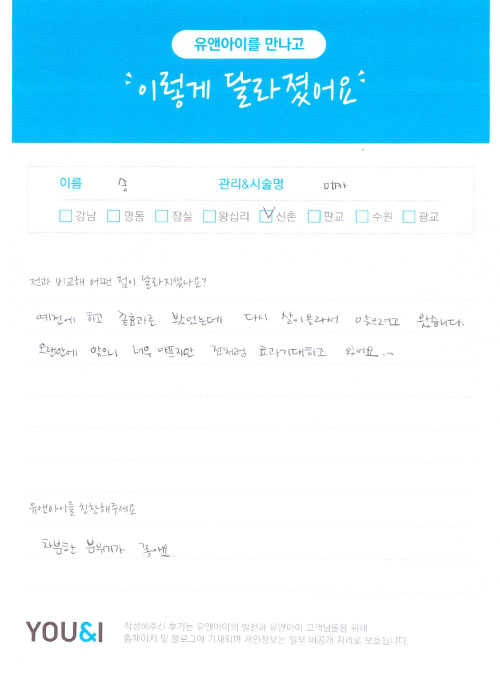 유앤아이를 만나고
이렇게 달라졌어요
이름 송 관리&시술명 메카
강남 명동 잠실 왕십리 신촌 판교 수원 광교
전과 비교해 어떤 점이 달라지셨나요?
예전에 하고 꿀효과를 봤었는데 다시 살이올라서 맞으려고 왔습니다.
오랜만에 맞으니 너무 아프지만 전처럼 효과기대하고 있어요...
유앤아이를 칭찬해주세요
차분한 분위기가 좋아요
YOU&I
작성해주신 후기는 유앤아이의 발전과 유앤아이 고객님들을 위해
홈페이지 및 블로그에 기재되며 개인정보는 일부 비공개 처리로 보호됩니다.